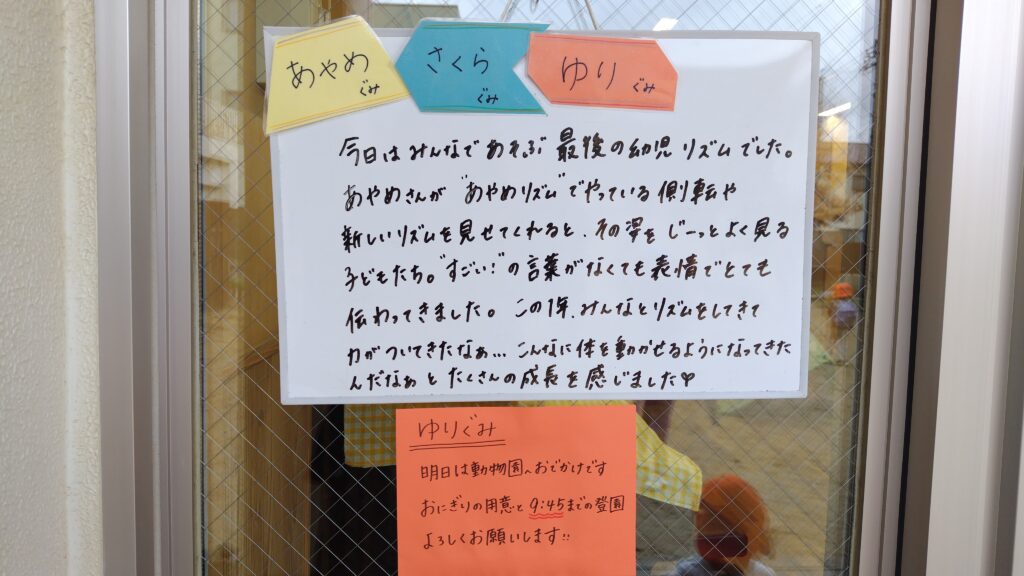 あやめ ぐみ
さくら ぐみ
ゆり ぐみ
今日はみんなであそぶ最後の幼児リズムでした。
あやめさんが"あやめリズム"でやっている側転や
新しいリズムを見せてくれると、その姿をじーっとよく見る
子どもたち。"すごい!"の言葉がなくても表情でとても
伝わってきました。この1年、みんなとリズムをしてきて
力がついてきたなぁ... こんなに体を動かせるようになってきた
んだなぁとたくさんの成長を感じました♡
ゆりぐみ
明日は動物園へおでかけです
おにぎりの用意と9:45までの登園
よろしくお願いします!!